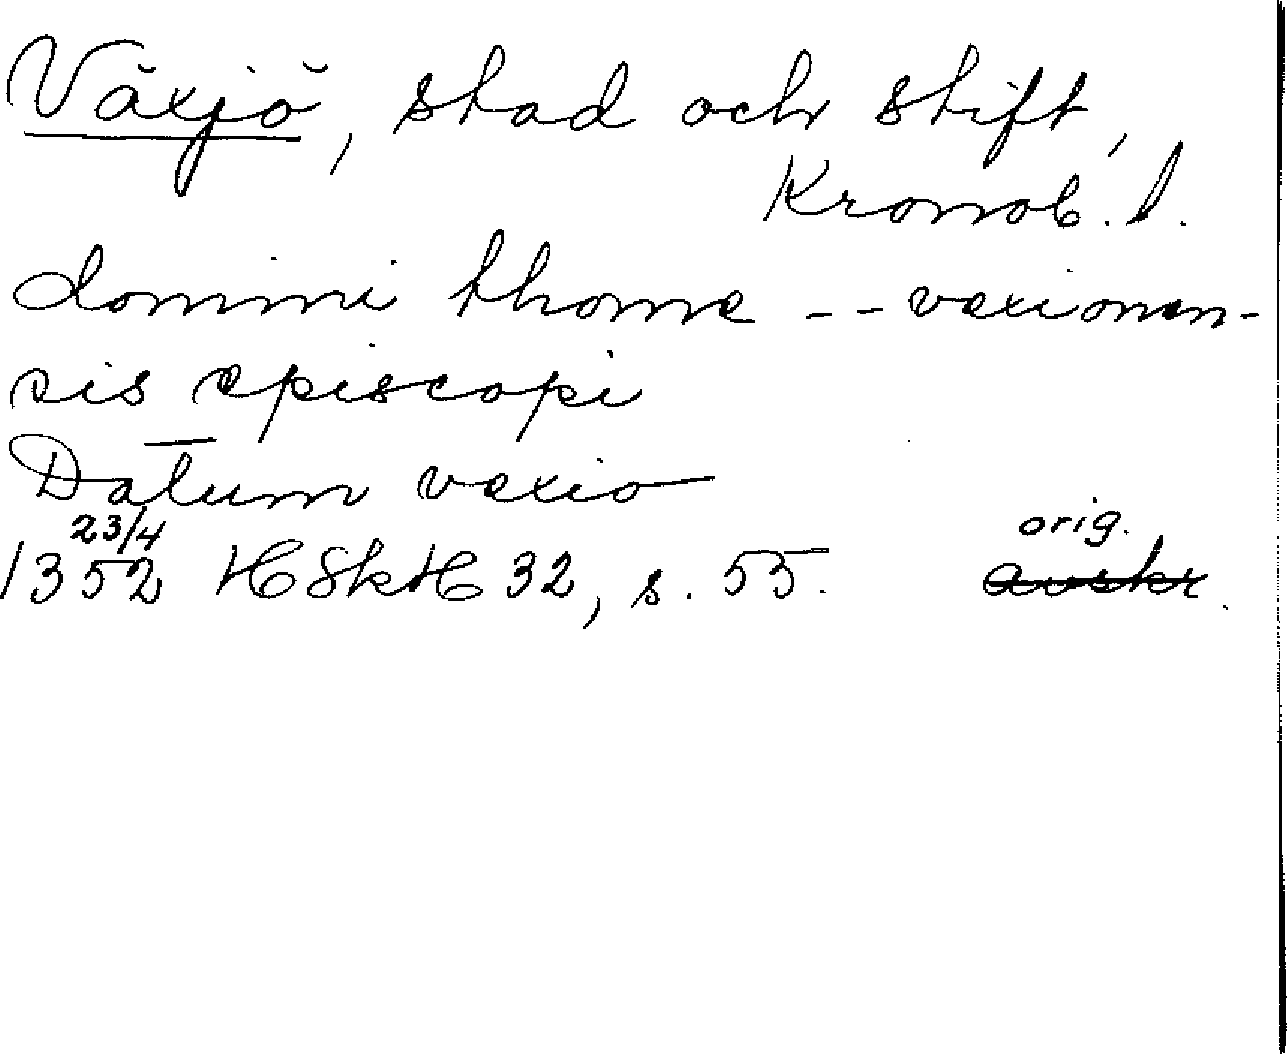 Växjö, stad och stift,
Kronob. l.
domini thome -- vexionen-
sis episcopi
Datum vexio
23/4 orig.
1352 HSkH 32, s. 55. avskr.